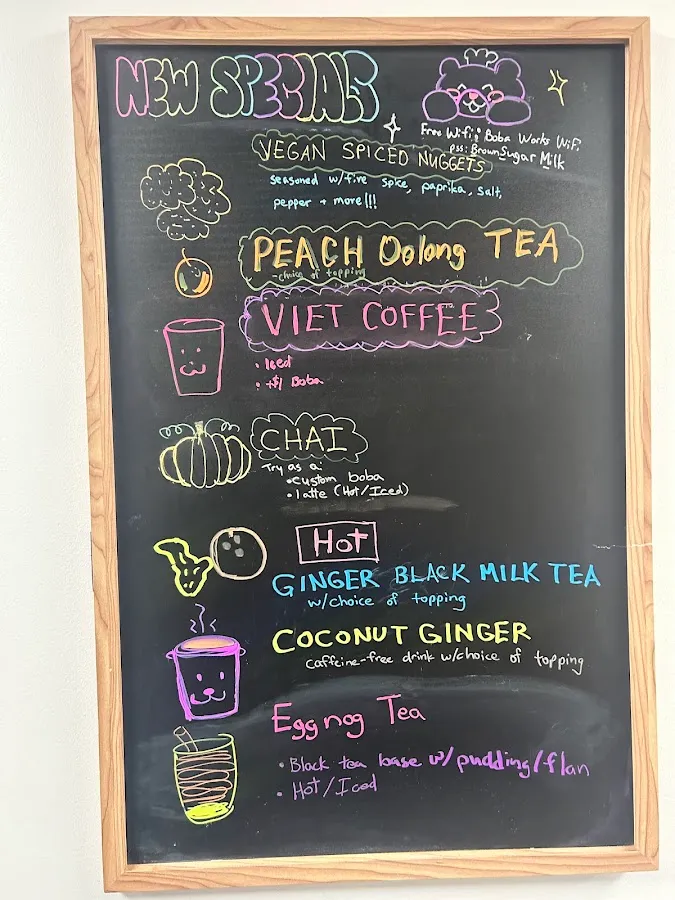 NEW SPECIALS
Free Wifi: Boba Works WiFi
pss: BrownSugar Milk
VEGAN SPICED NUGGETS
seasoned w/five spice, paprika, salt,
pepper + more!!!
PEACH Oolong TEA
-choice of topping
VIET COFFEE
• Iced
• +$1 Boba
CHAI
Try as a:
• custom boba
• latte (Hot/Iced)
Hot
GINGER BLACK MILK TEA
w/choice of topping
COCONUT GINGER
Caffeine-free drink w/choice of topping
Eggnog Tea
• Black tea base w/pudding/flan
• Hot/Iced